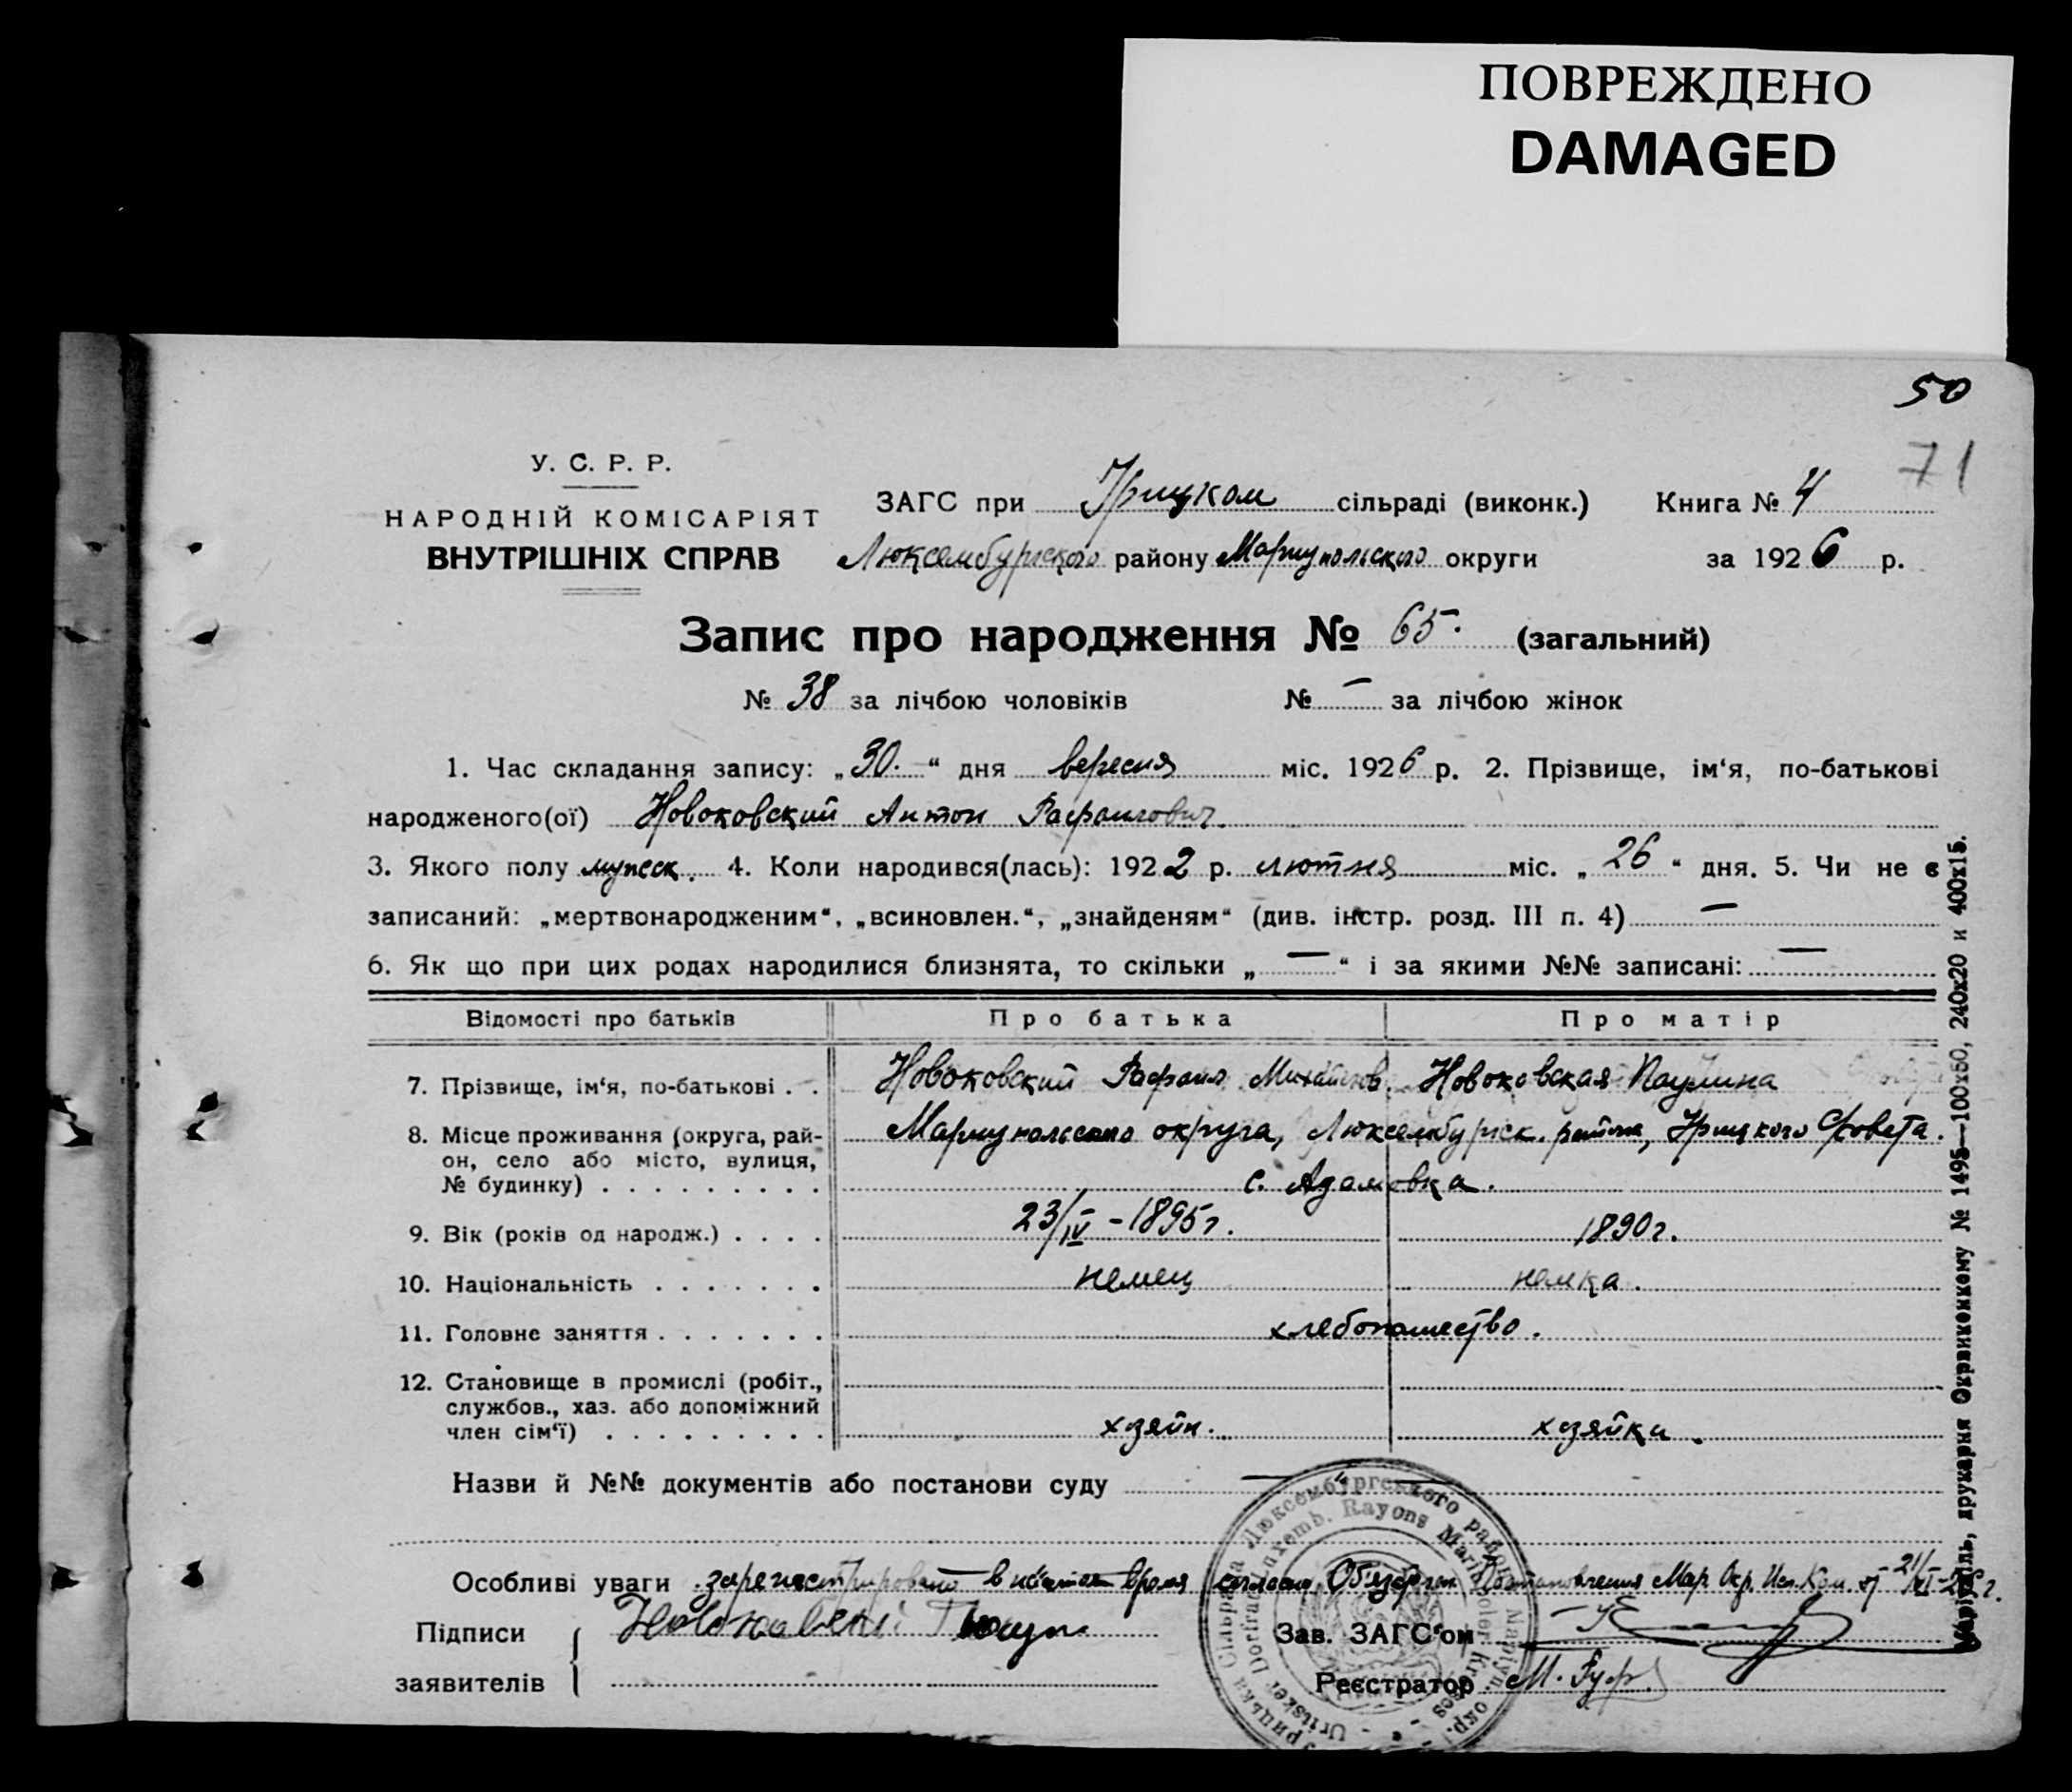 ПОВРЕЖДЕНО
DAMAGED
50
71
У. С. Р. Р.
НАРОДНІЙ КОМІСАРІЯТ
ВНУТРІШНІХ СПРАВ
ЗАГС при Урицком сільраді (виконк.) Книга № 4
Люксембургского району Мариупольского округи за 1926 р.
Запис про народження № 65. (загальний)
№ 38 за лічбою чоловіків № — за лічбою жінок
1. Час складання запису: „30.“ дня вересня міс. 1926 р. 2. Прізвище, ім‘я, по-батькові
народженого(ої) Новоковский Антон Рафаилович.
3. Якого полу мужеск. 4. Коли народився(лась): 1922 р. лютня міс. „26“ дня. 5. Чи не є
записаний: „мертвонародженим“, „всиновлен.“, „знайденям“ (див. інстр. розд. III п. 4) —
6. Як що при цих родах народилися близнята, то скільки „—“ і за якими №№ записані: —
Відомості про батьків Про батька Про матір
7. Прізвище, ім‘я, по-батькові . . Новоковский Рафаил Михайлов. Новоковская Паулина
8. Місце проживання (округа, рай-
он, село або місто, вулиця,
№ будинку) . . . . . . . . .
Мариупольского округа, Люксембургск. района, Урицкого с/совета.
с. Адамовка.
9. Вік (років од народж.) . . . . 23/IV - 1895 г. 1890 г.
10. Національність . . . . . . . немец немка.
11. Головне заняття . . . . . . . хлебопашество.
12. Становище в промислі (робіт.,
службов., хаз. або допоміжний
член сім‘ї) . . . . . . . . .
хозяин. хозяйка.
Назви й №№ документів або постанови суду —
Особливі уваги зарегистрировано в настоящ время согласно Обязател. Постановления Мар. Окр. Исп. Ком. от
Підписи
заявителів
Зав. ЗАГС‘ом
Реєстратор М.
Урицька Сільрада Люксембургського району Маріуп. окр.
Uritsker Dorfrad Luxemb. Rayons Mariupoler Kreises
Маріюпіль, друкарня Окрвиконкому № 1495—100x50, 240x20 и 400x15.